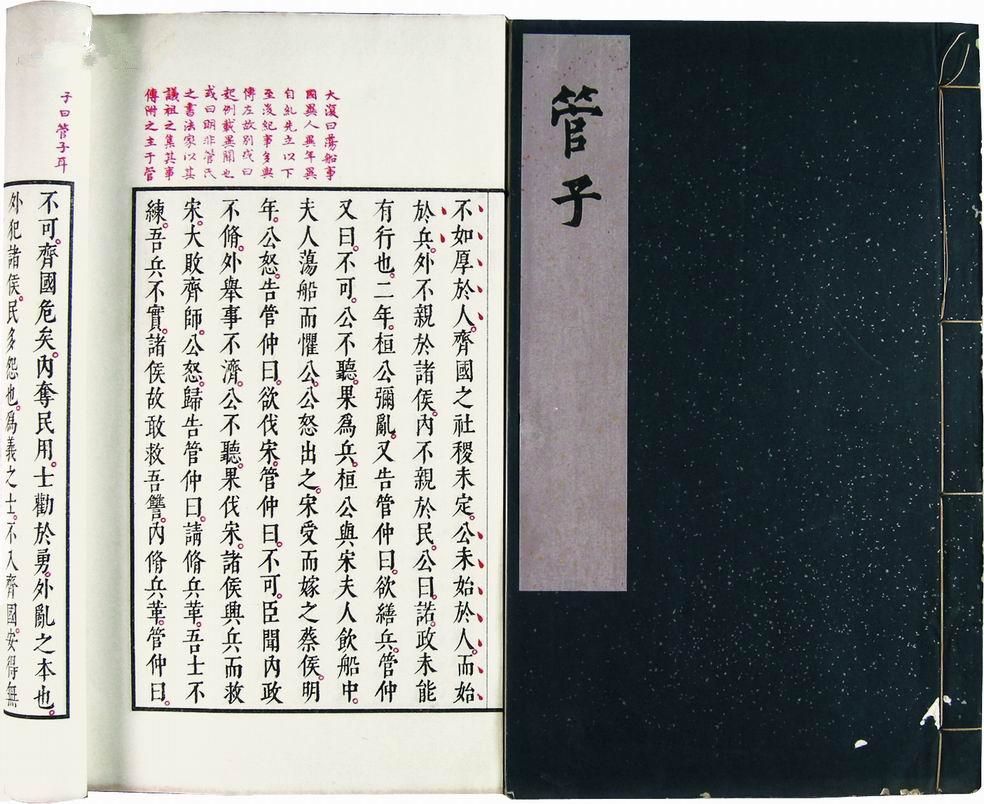 管子
大復曰蕩船事
國異人異年異
自糺先立以下
至後紀事多與
傳左故別或曰
起例載異聞也
或曰明非管氏
之書法家以其
議祖之集其事
傳附之主于管
不如厚於人。齊國之社稷未定。公未始於人。而始
於兵。外不親於諸侯。內不親於民。公曰。諾。政未能
有行也。二年。桓公彌亂。又告管仲曰。欲繕兵。管仲
又曰。不可。公不聽。果爲兵。桓公與宋夫人飲船中。
夫人蕩船而懼公。公怒出之。宋受而嫁之蔡侯。明
年。公怒。告管仲曰。欲伐宋。管仲曰。不可。臣聞內政
不脩。外舉事不濟。公不聽。果伐宋。諸侯興兵而救
宋。大敗齊師。公怒。歸告管仲曰。請脩兵革。吾士不
練。吾兵不實。諸侯故敢救吾讐。內脩兵革。管仲曰。
子曰管子耳
不可。齊國危矣。內奪民用。士勸於勇。外亂之本也。
外犯諸侯。民多怨也。爲義之士。不入齊國。安得無